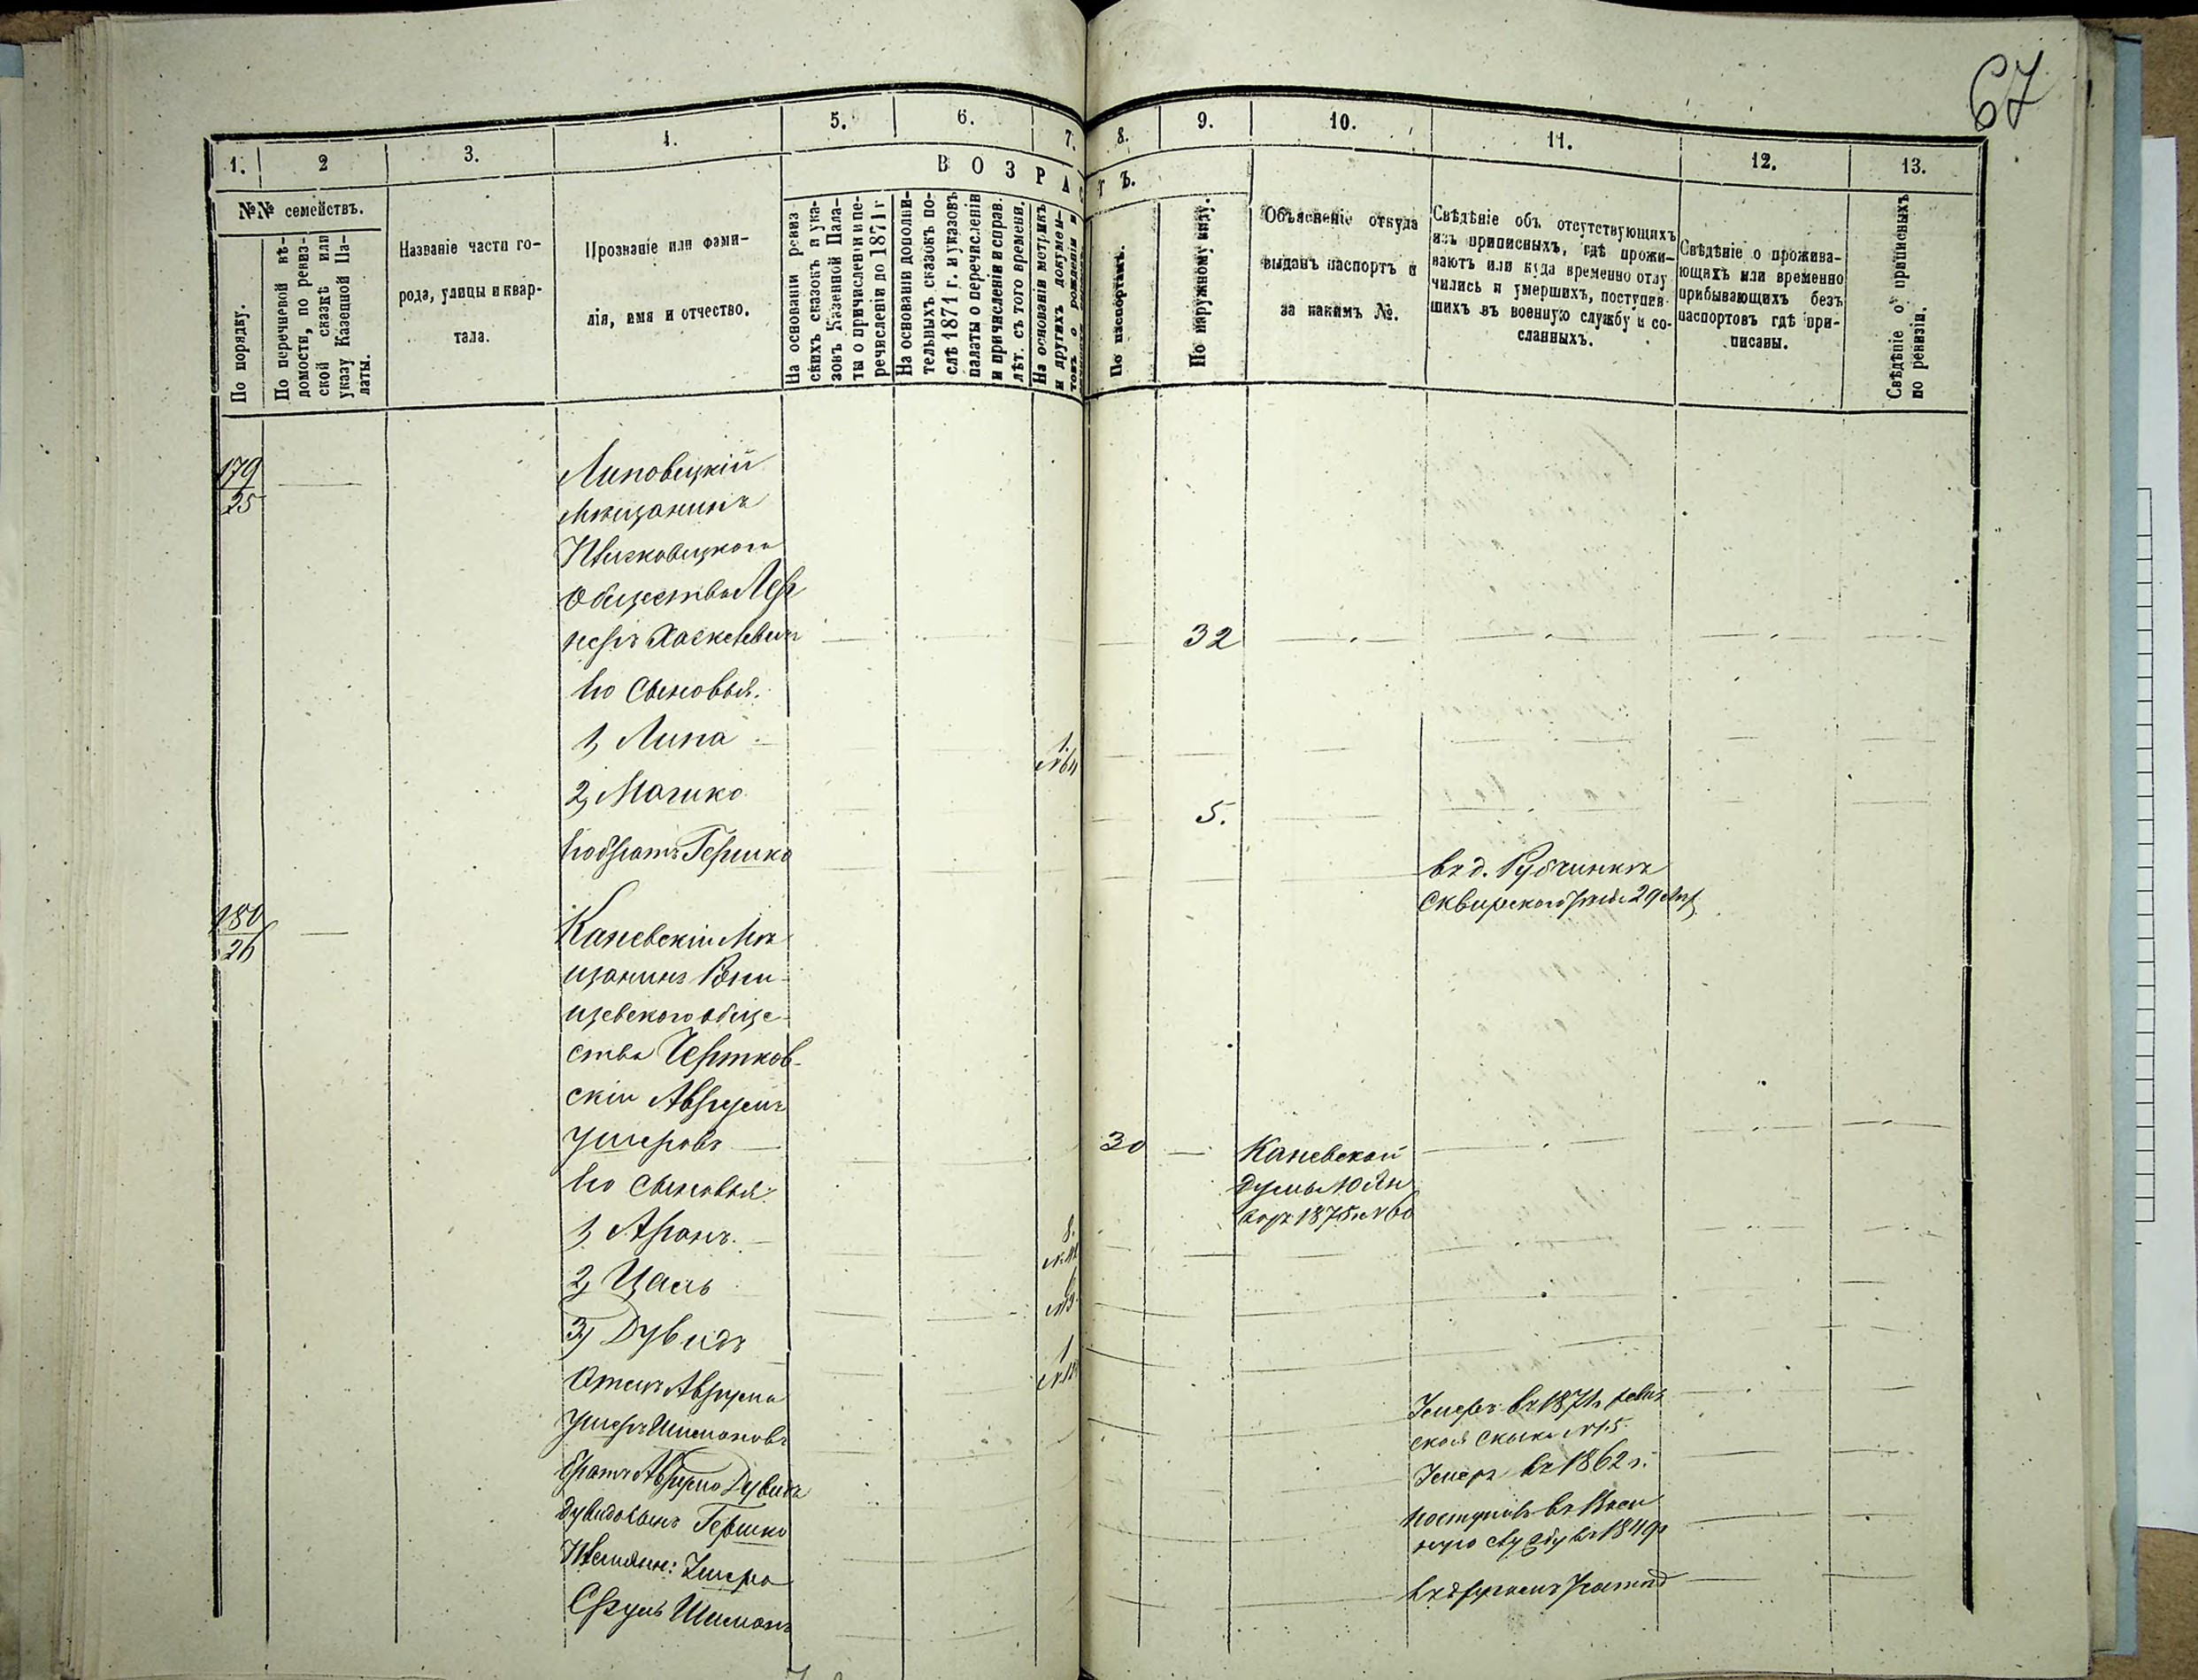 67
1. 2 3. 4. 5. 6. 7. 8. 9. 10. 11. 12. 13.
В О З Р А С Т Ъ.
№№ семействъ.
По порядку.
По перечневой вѣ-
домости, по ревиз-
ской сказкѣ или
указу Казенной Па-
латы.
Названіе части го-
рода, улицы и квар-
тала.
Прозваніе или фами-
лія, имя и отчество.
На основаніи ревиз
скихъ сказокъ и ука-
зовъ Казенной Пала-
ты о причисленіи и пе-
речисленіи до 1871 г
На основаніи дополни-
тельныхъ сказокъ по-
слѣ 1871 г. и указовъ
палаты о перечисленіи
и причисленіи и справ.
лѣт. съ того времени.
На основаніи метрикъ
и другихъ докумен-
товъ о рожденіи и
По паспортамъ.
По наружному виду.
Объясненіе откуда
выданъ паспортъ и
за какимъ №.
Свѣдѣніе объ отсутствующихъ
изъ приписныхъ, гдѣ прожи-
ваютъ или куда временно отлу
чились и умершихъ, поступив
шихъ въ военную службу и со-
сланныхъ.
Свѣдѣніе о прожива-
ющихъ или временно
прибывающихъ безъ
паспортовъ гдѣ при-
писаны.
Свѣдѣніе о приписныхъ
по ревизіи.
179
25
Липовецкій
мѣщанинъ
Общества Лер
неръ Хаскелевичъ 32
Его сыновья:
1, Липа 1. №64
2, Мошко 5.
Его братъ Гершко въ д. Рубчинкѣ
Сквирскаго уѣзда 29
180
26
Каневскій Мѣ
щанинъ Ржи-
щевскаго обще-
ства Чертков-
скій Аврумъ
Ушеровъ 30 Каневской
Думы 10 Ян
варя 1875 №60
Его сыновья:
1, Аронъ 8.
2, Цаль
3, Дувидъ 1
Отецъ Аврума
Ушеръ Шимоновъ Умеръ въ 1871 ревиз
ской сказкѣ №15
Братъ Аврума Дувидъ Умеръ въ 1862 г.
Дувида сынъ Гершко поступилъ въ Воен
ную службу въ 1849г
Племян: Ушера
Сруль Шимонъ